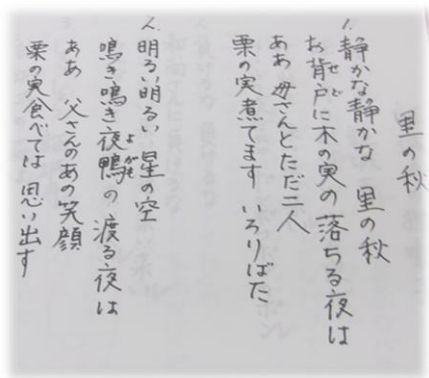 里の秋
1.静かな静かな 里の秋
お背戸に木の実の落ちる夜は
ああ 母さんとただ二人
栗の実煮てます いろりばた
2.明るい明るい 星の空
鳴き鳴き夜鴨の渡る夜は
ああ 父さんのあの笑顔
栗の実食べては 思い出す